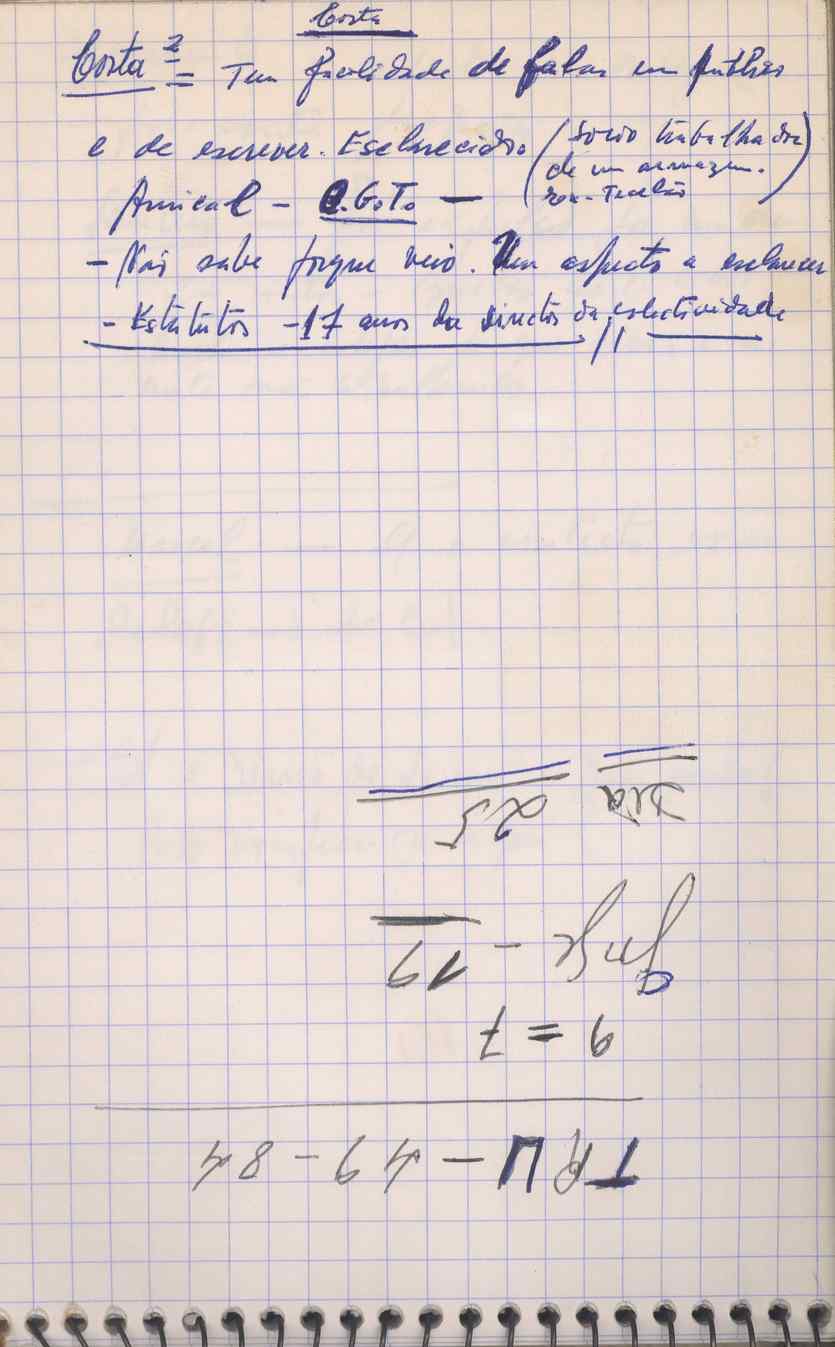 Costa
Costa 2 = Tem facilidade de falar em público
e de escrever. Esclarecido. (Sócio trabalhador
de um armazem.
ex-Tecelão)
Amical - C.G.T. -
- Não sabe porque veio. Um aspecto a esclarecer
- Estatutos - 17 anos da direcção da colectividade
TRU - 49 - 84
9 = 7
- 19
Dia 25